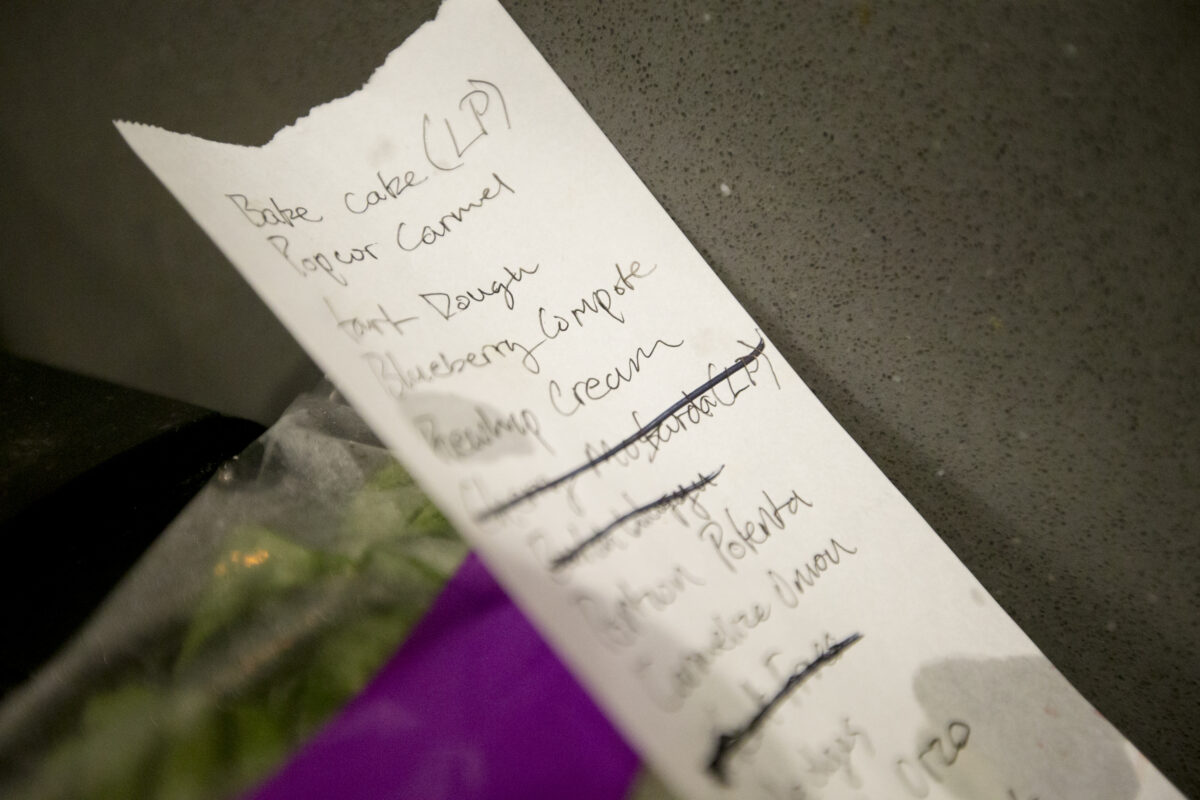 Bake cake (LP)
Popcor Carmel
tart Dough
Blueberry Compote
Cream
Mustarda (LP)
Portion Polenta
Carmelize Onion
Orzo